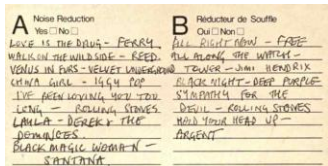 A Noise Reduction
Yes □ No □
LOVE IS THE DRUG - FERRY
WALK ON THE WILD SIDE - REED.
VENUS IN FURS - VELVET UNDERGROUND
CHINA GIRL - IGGY POP
I'VE BEEN LOVING YOU TOO
LONG - ROLLING STONES
LAYLA - DEREK & THE
DOMINOES.
BLACK MAGIC WOMAN -
SANTANA.
B Réducteur de Souffle
Oui □ Non □
ALL RIGHT NOW - FREE
ALL ALONG THE WATCH -
TOWER - JIMI HENDRIX
BLACK NIGHT - DEEP PURPLE
SYMPATHY FOR THE
DEVIL - ROLLING STONES
HOLD YOUR HEAD UP -
ARGENT